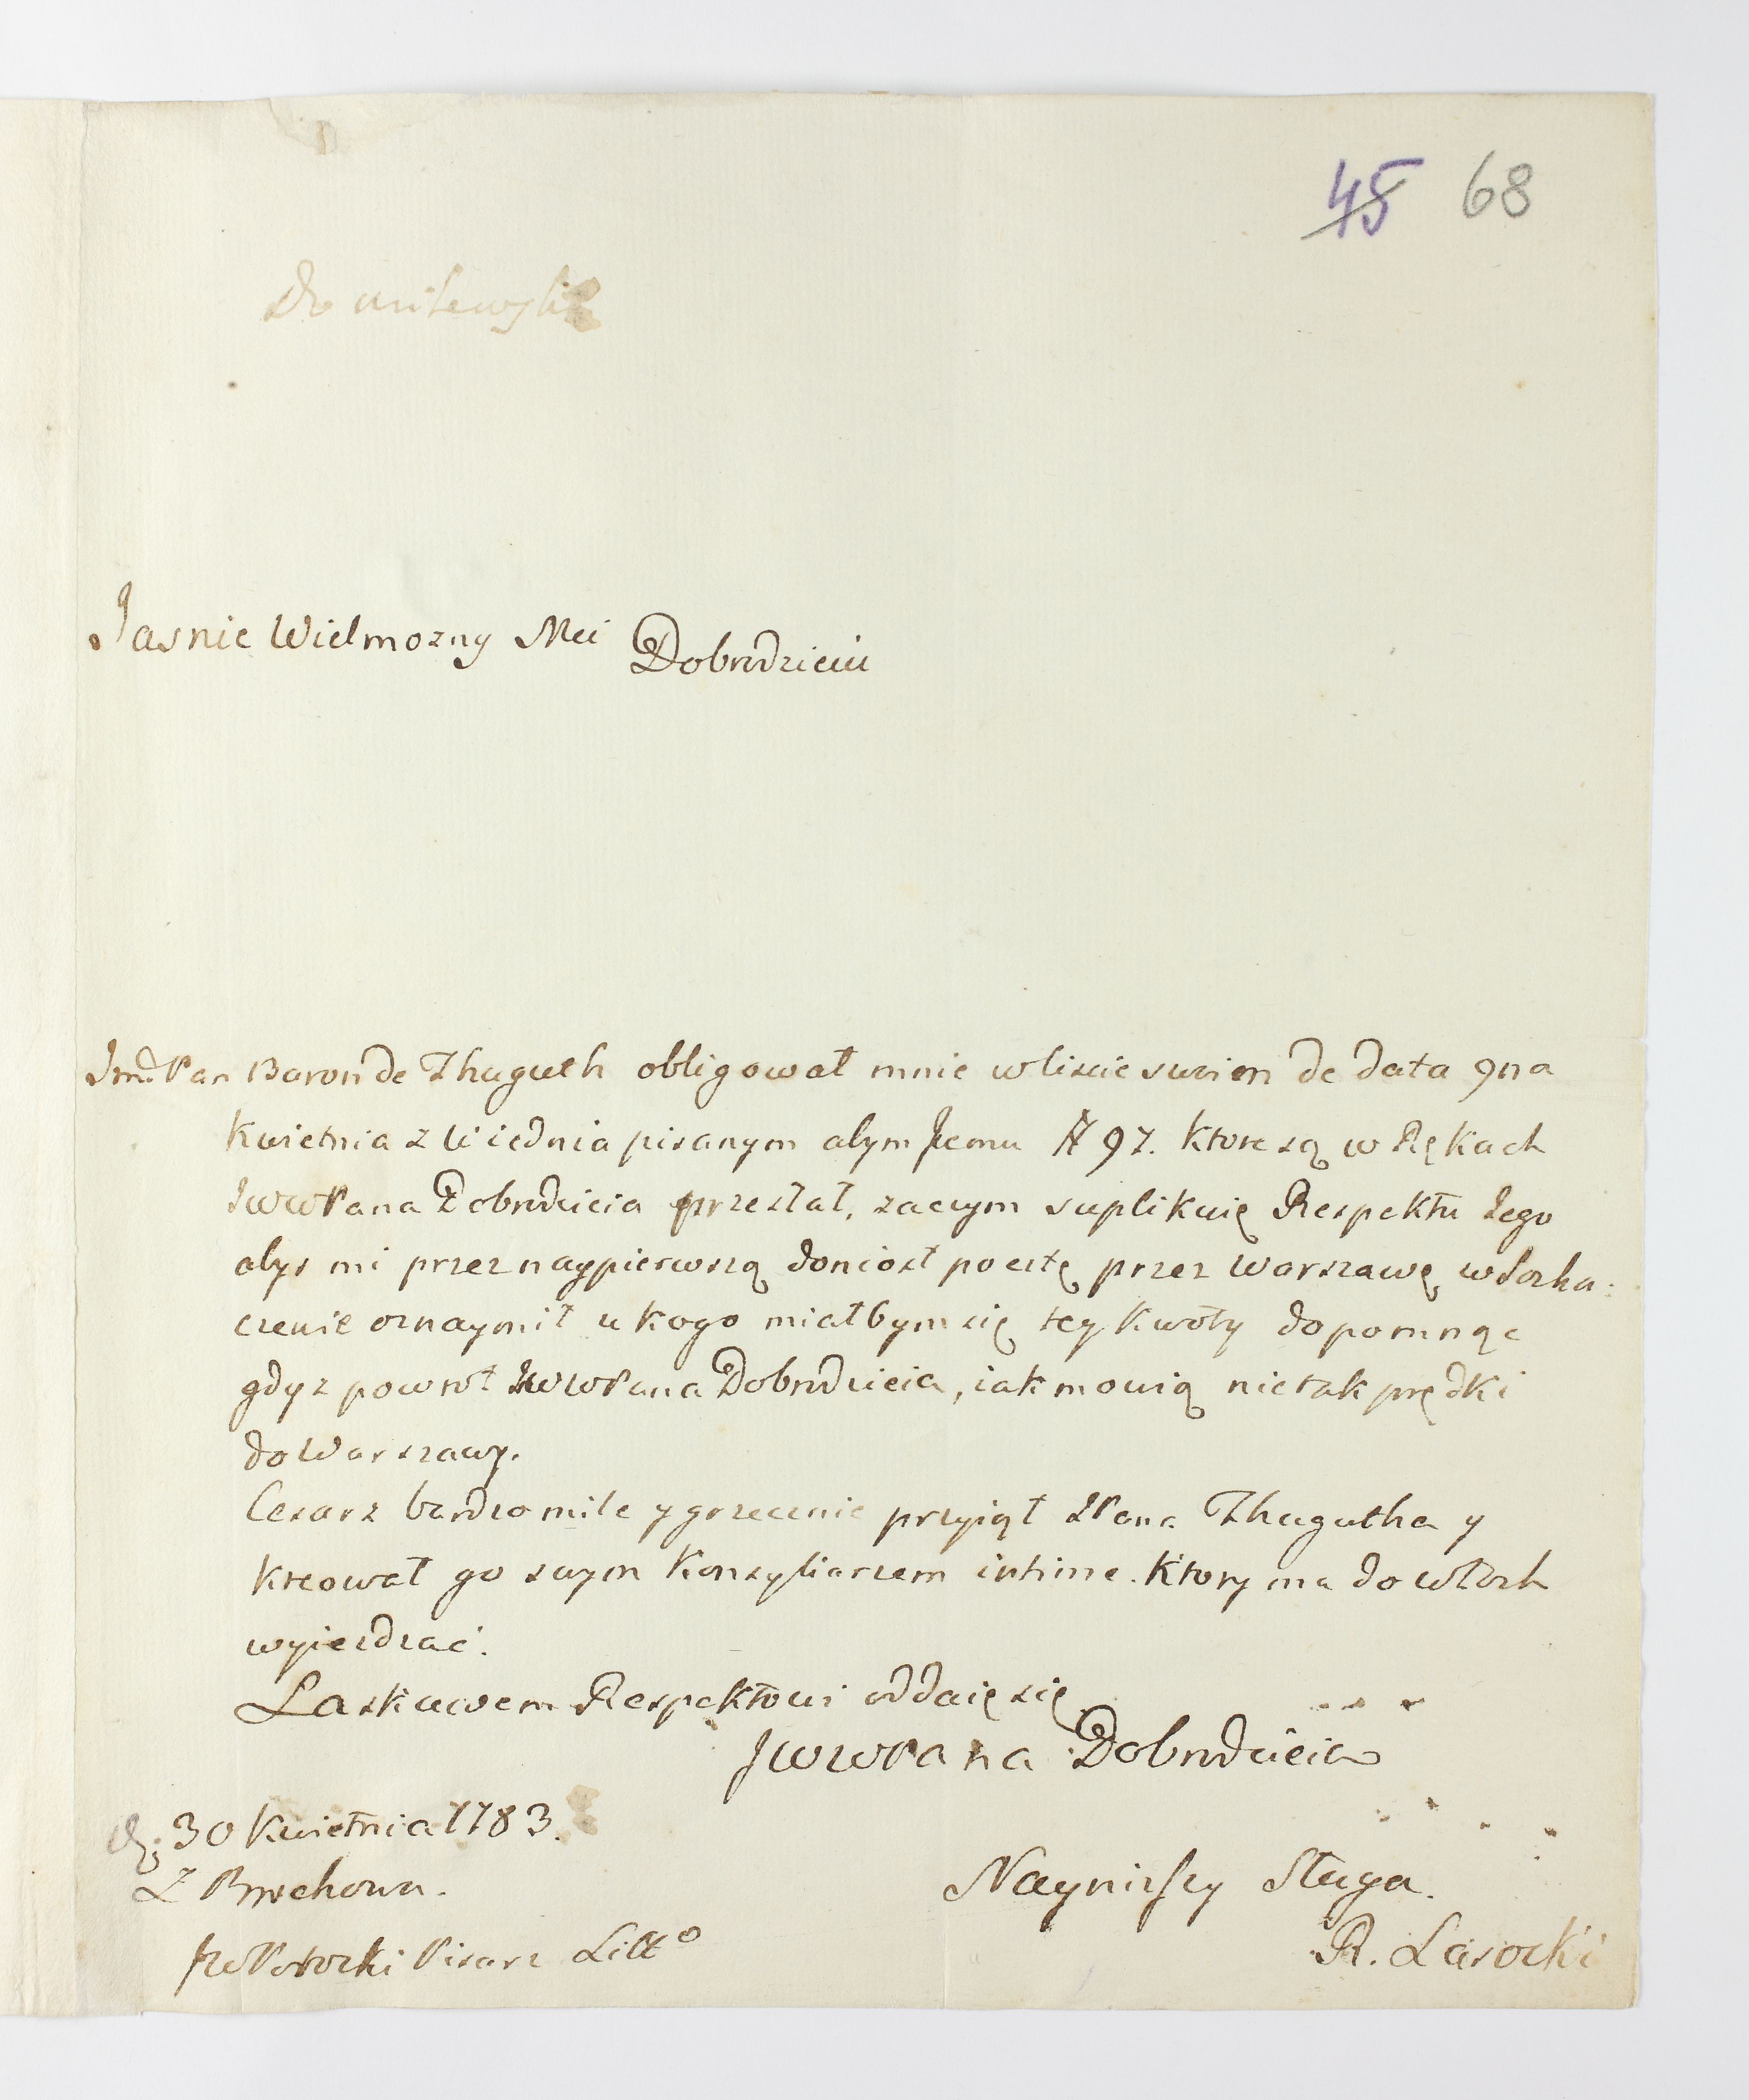 45 68
Jasnie Wielmozny Mci Dobrodzieiu
Jmć Pan Baron de Thaguth obligował mnie w liscie swoiem de data 9na
Kwietnia z Wiednia pisanym abym Jemu # 97. ktore są w Rękach
JWWPana Dobrodzieia przesłał, zaczym suplikuię Respektu Jego
abys mi przez naypierwszą doniosł pocztę przez Warszawę, w Socha:
czewie oznaymił u kogo miałbym się tey kwoty dopomnąc
gdyz powrot JWWPana Dobrodzieia, iak mowią nie tak prędki
do Warszawy.
Cesarz bardzo mile y grzecznie przyiął JPana Thagutha y
kreował go swym Konsyliarzem intime. Ktory ma do Włoch
wyiezdzać.
Laskawem Respektowi oddaię się
JWWPana Dobrodzieia
D. 30 Kwietnia 1783.
Z Brochowa.
Nayniższy Sługa.
JW Potocki Pisarz Litt°
R. Lasocki